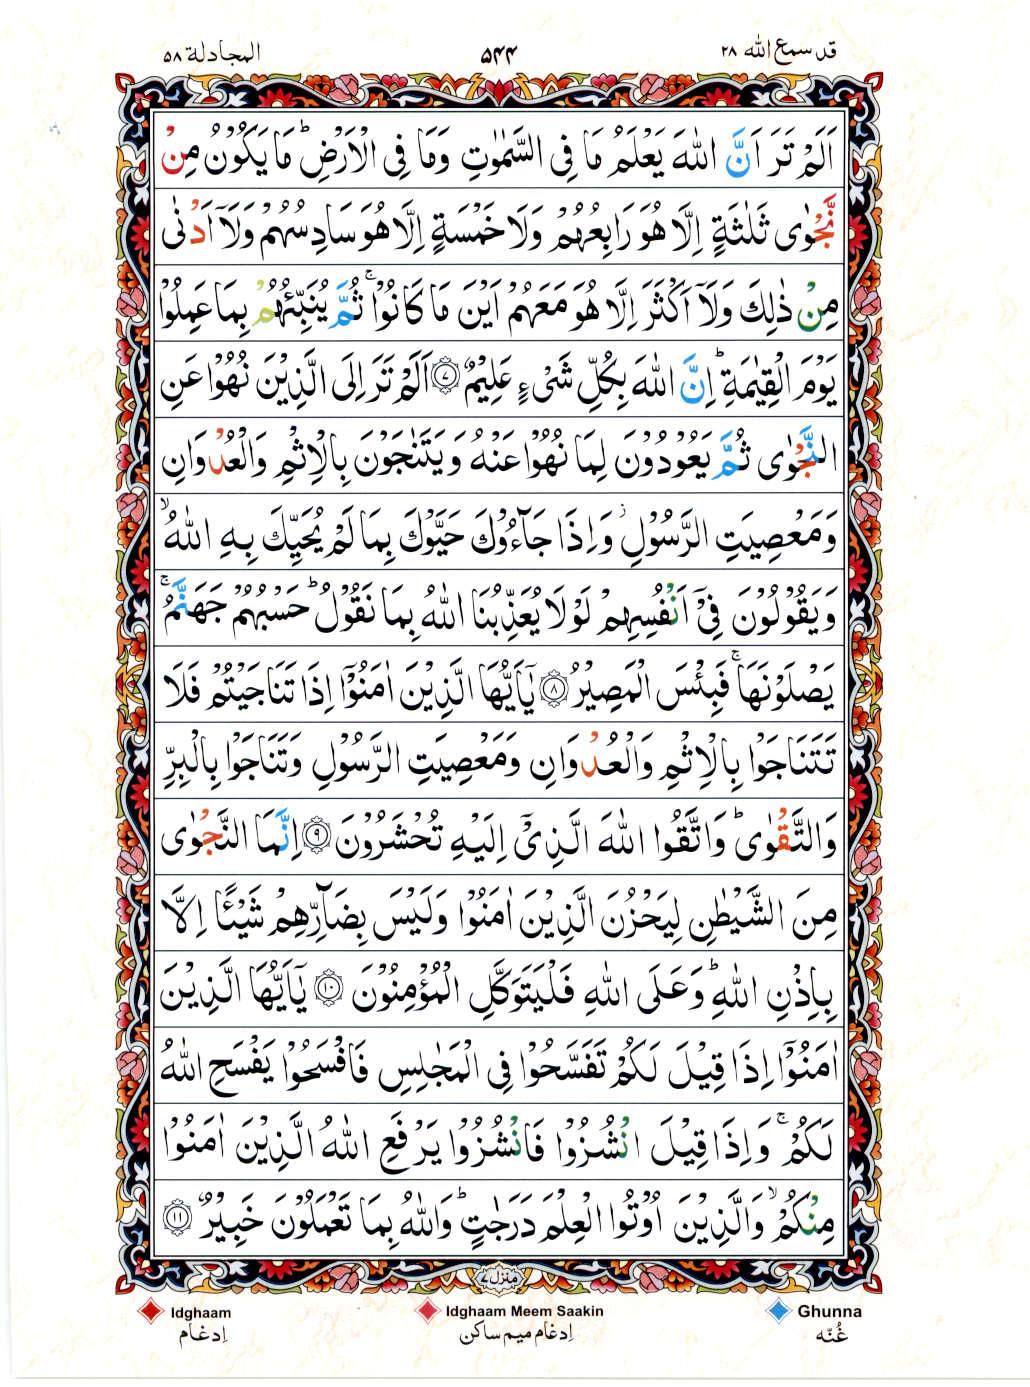 المجادلة ٥٨ ۵۴۴ قد سمع الله ٢٨
اَلَمْ تَرَ اَنَّ اللّٰهَ يَعْلَمُ مَا فِى السَّمٰوٰتِ وَمَا فِى الْاَرْضِ ؕ مَا يَكُوْنُ مِنْ
نَّجْوٰى ثَلٰثَةٍ اِلَّا هُوَ رَابِعُهُمْ وَلَا خَمْسَةٍ اِلَّا هُوَ سَادِسُهُمْ وَلَاۤ اَدْنٰى
مِنْ ذٰلِكَ وَلَاۤ اَكْثَرَ اِلَّا هُوَ مَعَهُمْ اَيْنَ مَا كَانُوْا ۚ ثُمَّ يُنَبِّئُهُمْ بِمَا عَمِلُوْا
يَوْمَ الْقِيٰمَةِ ؕ اِنَّ اللّٰهَ بِكُلِّ شَىْءٍ عَلِيْمٌ ۝٧ اَلَمْ تَرَ اِلَى الَّذِيْنَ نُهُوْا عَنِ
النَّجْوٰى ثُمَّ يَعُوْدُوْنَ لِمَا نُهُوْا عَنْهُ وَيَتَنٰجَوْنَ بِالْاِثْمِ وَالْعُدْوَانِ
وَمَعْصِيَتِ الرَّسُوْلِ ؗ وَاِذَا جَآءُوْكَ حَيَّوْكَ بِمَا لَمْ يُحَيِّكَ بِهِ اللّٰهُ ۙ
وَيَقُوْلُوْنَ فِىْۤ اَنْفُسِهِمْ لَوْلَا يُعَذِّبُنَا اللّٰهُ بِمَا نَقُوْلُ ؕ حَسْبُهُمْ جَهَنَّمُ ۚ
يَصْلَوْنَهَا ۚ فَبِئْسَ الْمَصِيْرُ ۝٨ يٰۤاَيُّهَا الَّذِيْنَ اٰمَنُوْۤا اِذَا تَنَاجَيْتُمْ فَلَا
تَتَنَاجَوْا بِالْاِثْمِ وَالْعُدْوَانِ وَمَعْصِيَتِ الرَّسُوْلِ وَتَنَاجَوْا بِالْبِرِّ
وَالتَّقْوٰى ؕ وَاتَّقُوا اللّٰهَ الَّذِىْۤ اِلَيْهِ تُحْشَرُوْنَ ۝٩ اِنَّمَا النَّجْوٰى
مِنَ الشَّيْطٰنِ لِيَحْزُنَ الَّذِيْنَ اٰمَنُوْا وَلَيْسَ بِضَآرِّهِمْ شَيْئًا اِلَّا
بِاِذْنِ اللّٰهِ ؕ وَعَلَى اللّٰهِ فَلْيَتَوَكَّلِ الْمُؤْمِنُوْنَ ۝١٠ يٰۤاَيُّهَا الَّذِيْنَ
اٰمَنُوْۤا اِذَا قِيْلَ لَكُمْ تَفَسَّحُوْا فِى الْمَجٰلِسِ فَافْسَحُوْا يَفْسَحِ اللّٰهُ
لَكُمْ ۚ وَاِذَا قِيْلَ انْشُزُوْا فَانْشُزُوْا يَرْفَعِ اللّٰهُ الَّذِيْنَ اٰمَنُوْا
مِنْكُمْ ۙ وَالَّذِيْنَ اُوْتُوا الْعِلْمَ دَرَجٰتٍ ؕ وَاللّٰهُ بِمَا تَعْمَلُوْنَ خَبِيْرٌ ۝١١
منزل ٧
Idghaam Idghaam Meem Saakin Ghunna
اِدغام اِدغام میم ساکن غُنّه